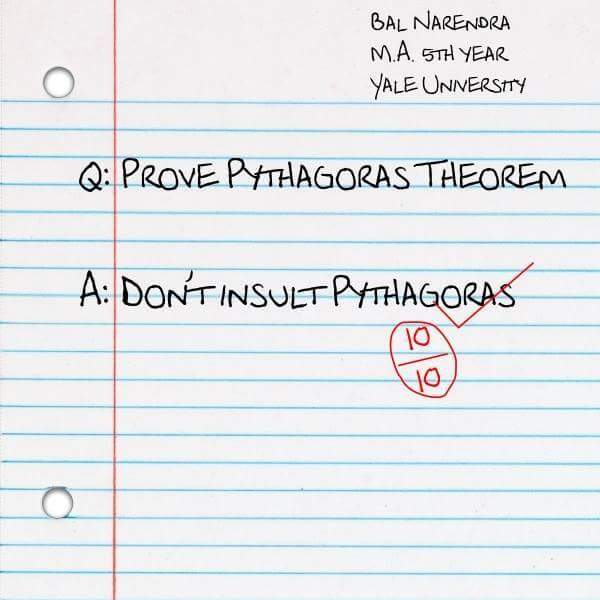 BAL NARENDRA
M.A. 5TH YEAR
YALE UNIVERSITY
Q: PROVE PYTHAGORAS THEOREM
A: DON'T INSULT PYTHAGORAS
10
10